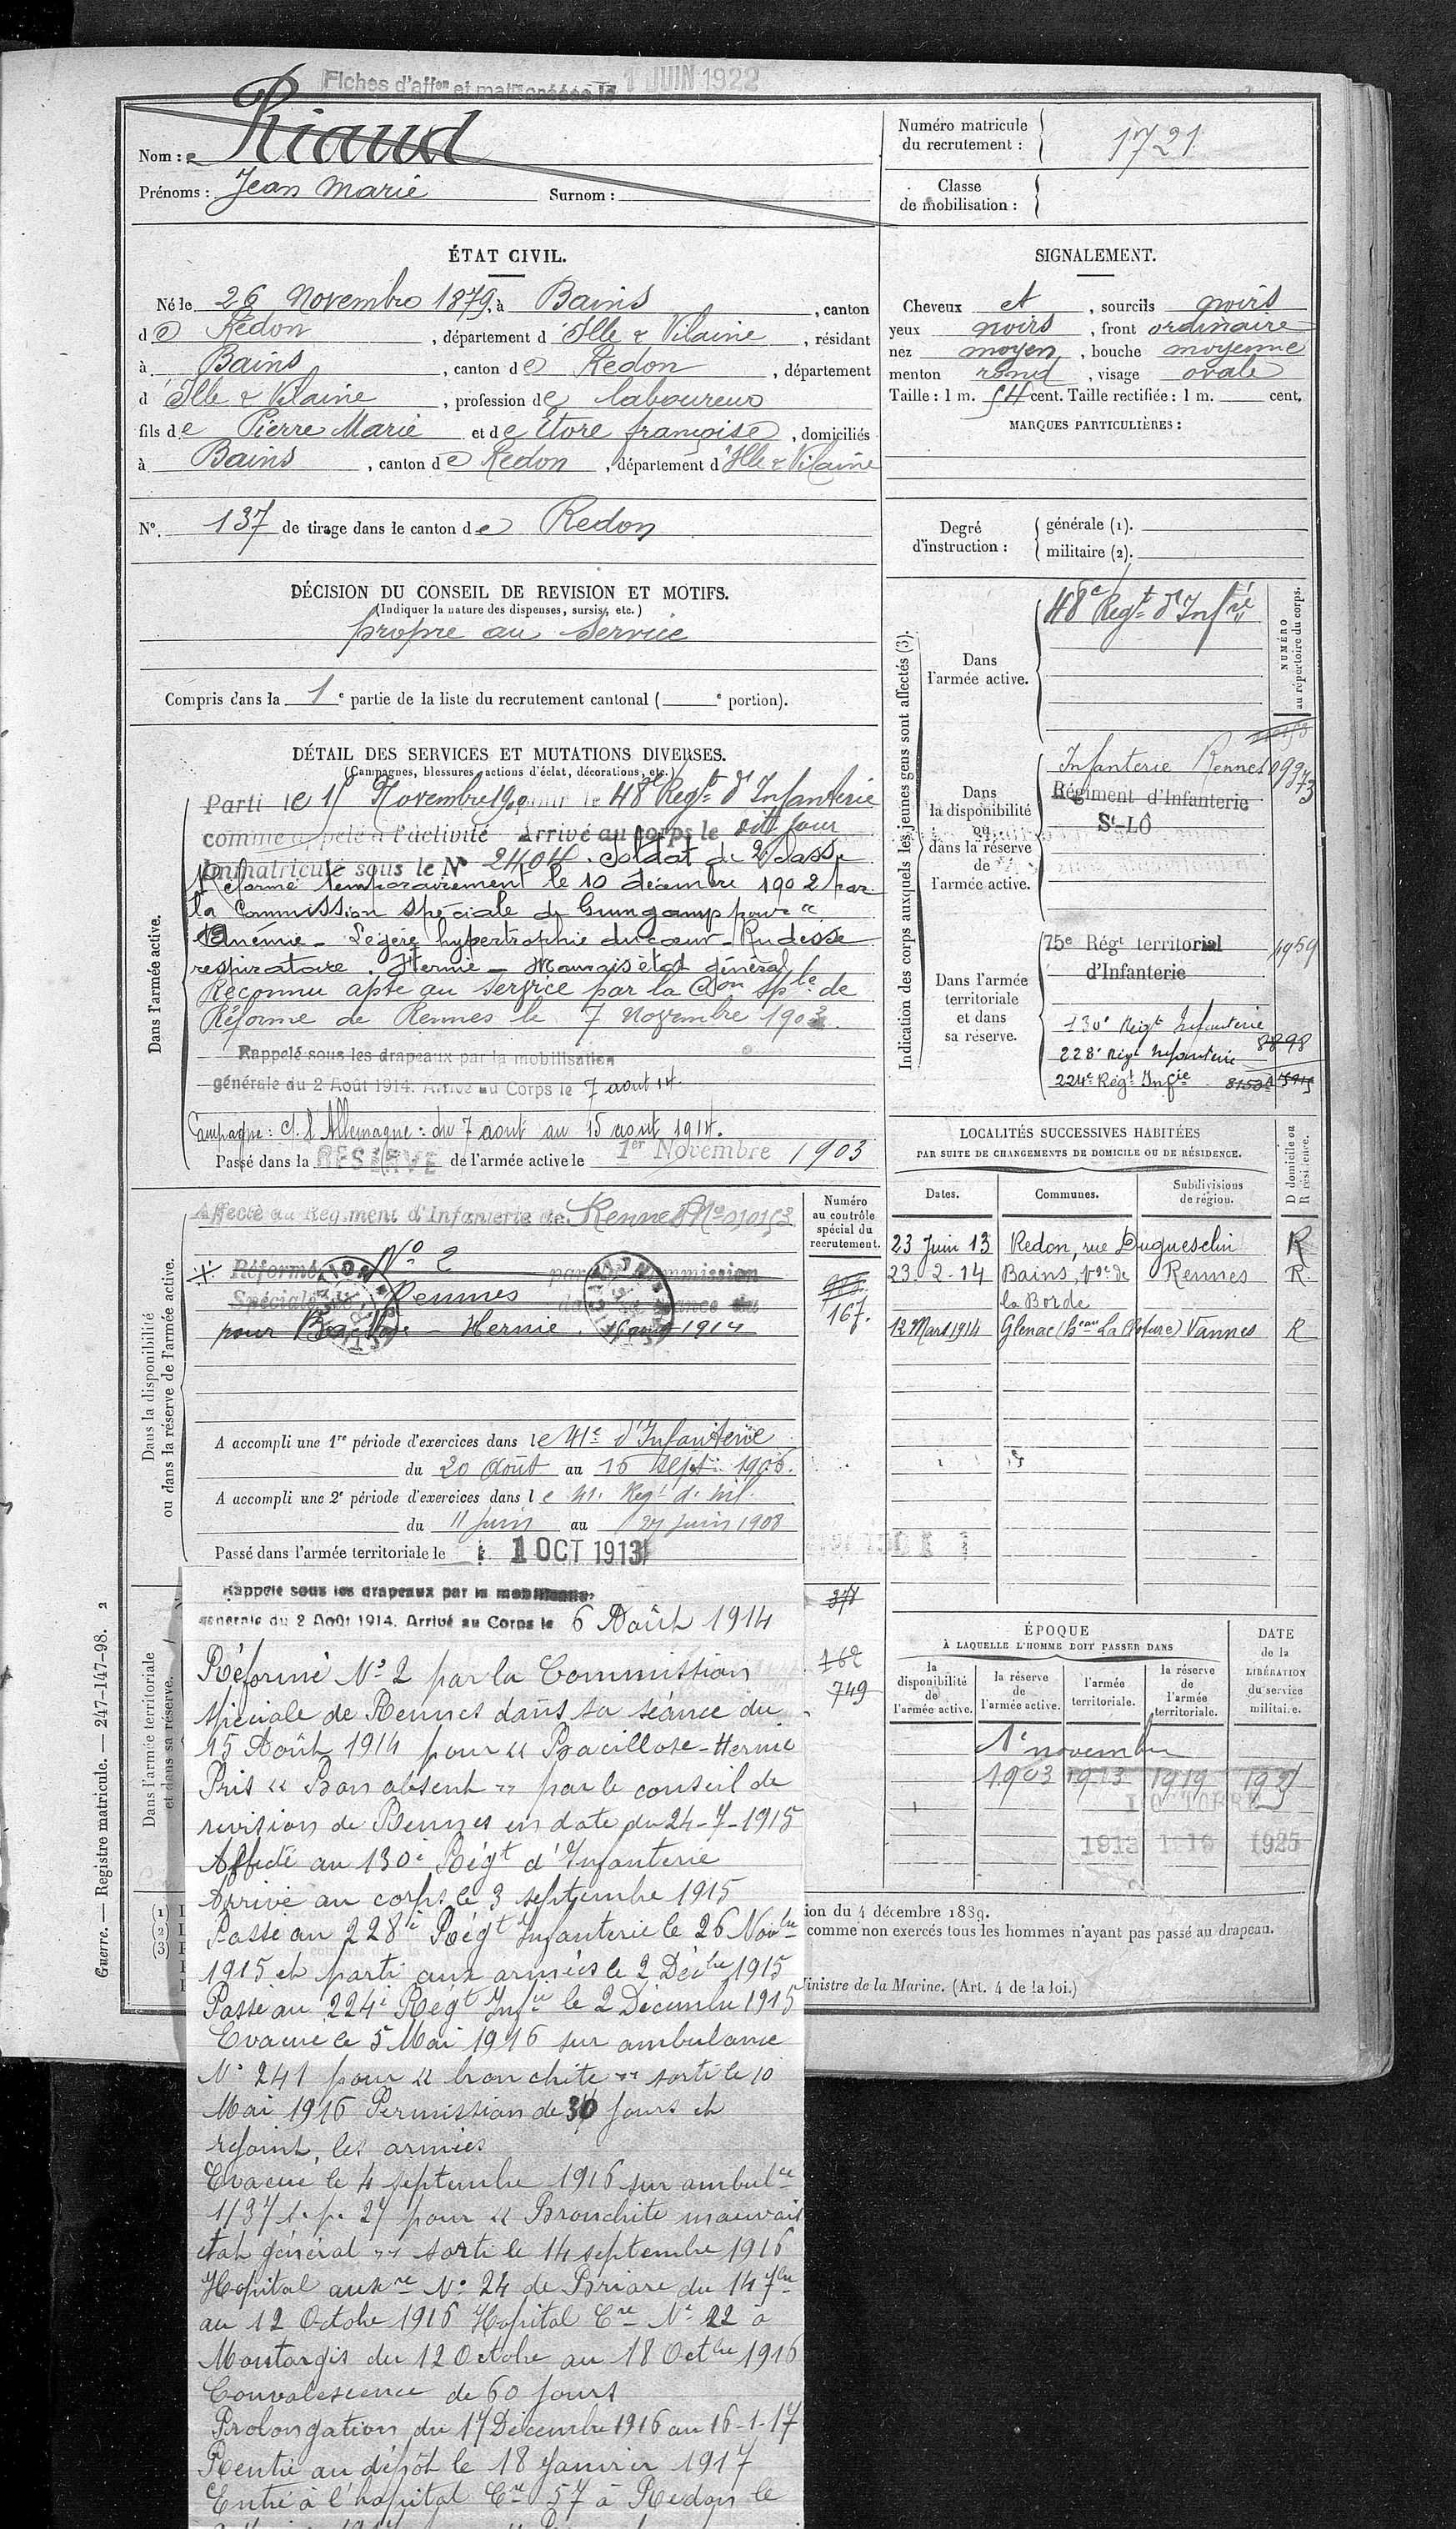 Fiches d'affon et matres créées le 1 JUIN 1922
Nom : Riaud
Prénoms : Jean Marie Surnom :
Numéro matricule
du recrutement : 1721
Classe
de mobilisation :
ÉTAT CIVIL.
Né le 26 Novembre 1879, à Bains, canton
de Redon, département d'Ille & Vilaine, résidant
à Bains, canton de Redon, département
d'Ille & Vilaine, profession de laboureur
fils de Pierre Marie et de Etore françoise, domiciliés
à Bains, canton de Redon, département d'Ille & Vilaine
N° 137 de tirage dans le canton de Redon
SIGNALEMENT.
Cheveux et, sourcils noirs
yeux noirs, front ordinaire
nez moyen, bouche moyenne
menton rond, visage ovale
Taille : 1 m. 54 cent. Taille rectifiée : 1 m. cent.
MARQUES PARTICULIÈRES :
Degré
d'instruction :
générale (1).
militaire (2).
DÉCISION DU CONSEIL DE REVISION ET MOTIFS.
(Indiquer la nature des dispenses, sursis, etc.)
propre au service
Compris dans la 1e partie de la liste du recrutement cantonal ( e portion).
DÉTAIL DES SERVICES ET MUTATIONS DIVERSES.
(Campagnes, blessures, actions d'éclat, décorations, etc.)
Dans l'armée active.
Parti le 15 Novembre 1900 pour le 48e Regt d'Infanterie
comme appelé à l'activité Arrivé au corps le dit jour
Immatriculé sous le N° 2404. Soldat de 2e classe
Réformé temporairement le 10 décembre 1902 par
la Commission spéciale de Guingamp pour "
Anémie - Légère hypertrophie du cœur - Rudesse
respiratoire. Hernie - Mauvais état général
Reconnu apte au service par la Con Sple de
Réforme de Rennes le 7 Novembre 1903.
Rappelé sous les drapeaux par la mobilisation
générale du 2 Août 1914. Arrivé au Corps le 7 aout 14.
Campagne : c/. l'Allemagne : du 7 aout au 15 aout 1914.
Passé dans la RÉSERVE de l'armée active le 1er Novembre 1903
Indication des corps auxquels les jeunes gens sont affectés (3).
NUMÉRO
au répertoire du corps.
Dans
l'armée active.
48e Regt d'Infrie
Dans
la disponibilité
ou
dans la réserve
de
l'armée active.
Infanterie Rennes 09373
Régiment d'Infanterie
St-LÔ
Dans l'armée
territoriale
et dans
sa réserve.
75e Régt territorial 4959
d'Infanterie
130e Régt Infanterie
228e Régt Infanterie 8898
224e Régt Infie
LOCALITÉS SUCCESSIVES HABITÉES
PAR SUITE DE CHANGEMENTS DE DOMICILE OU DE RÉSIDENCE.
Dates. Communes. Subdivisions
de région.
D domicile ou
R résidence.
23 Juin 13 Redon, rue Duguesclin R
23-2-14 Bains, vge de Rennes R.
la Borde
12 Mars 1914 Glénac Vannes R
Dans la disponibilité
ou dans la réserve de l'armée active.
Numéro
au contrôle
spécial du
recrutement.
Affecté au Régiment d'Infanterie de Rennes
Réformé N° 2 par Commission
Spéciale de Rennes dans sa séance du
pour Bacillose - Hernie. 15 aout 1914
167.
A accompli une 1re période d'exercices dans le 41e d'Infanterie
du 20 Août au 16 Sept. 1906.
A accompli une 2e période d'exercices dans le 41e Regt d'Inf.
du 11 Juin au 27 Juin 1908
Passé dans l'armée territoriale le 1 OCT 1913
Dans l'armée territoriale
et dans sa réserve.
Rappelé sous les drapeaux par la mobilisation
générale du 2 Août 1914. Arrivé au Corps le 6 Août 1914
Réformé N° 2 par la Commission
spéciale de Rennes dans sa séance du
15 Août 1914 pour « Bacillose - Hernie
Pris « Bon absent » par le conseil de
revision de Rennes en date du 24-7-1915
Affecté au 130e Régt d'Infanterie
Arrivé au corps le 3 septembre 1915
Passé au 228e Régt Infanterie le 26 Novbre
1915 et parti aux armées le 2 Décbre 1915
Passé au 224e Régt Infie le 2 Décembre 1915
Evacué le 5 Mai 1916 sur ambulance
N° 241 pour « bronchite » sorti le 10
Mai 1916 Permission de 30 jours et
rejoint les armées
Evacué le 4 septembre 1916 sur ambulce
1/37 s.p. 27 pour « Bronchite mauvais
état général » sorti le 14 septembre 1916
Hopital auxre N° 24 de Briare du 14 7bre
au 12 Octobre 1916 Hopital Cre N° 22 à
Montargis du 12 Octobre au 18 Octbre 1916
Convalescence de 60 jours
Prolongation du 17 Décembre 1916 au 16-1-17
Rentré au dépôt le 18 Janvier 1917
Entré à l'hopital Cre 57 à Redon le
377
162
749
ÉPOQUE
À LAQUELLE L'HOMME DOIT PASSER DANS
DATE
de la
LIBÉRATION
du service
militaire.
la
disponibilité
de
l'armée active.
la réserve
de
l'armée active.
l'armée
territoriale.
la réserve
de
l'armée
territoriale.
1er novembre
1903 1913 1919 1925
1 OCTOBRE
1913 1919 1925
(1)
(2)
(3)
ion du 4 décembre 1889.
comme non exercés tous les hommes n'ayant pas passé au drapeau.
Ministre de la Marine. (Art. 4 de la loi.)
Guerre. — Registre matricule. — 247-147-98. 2